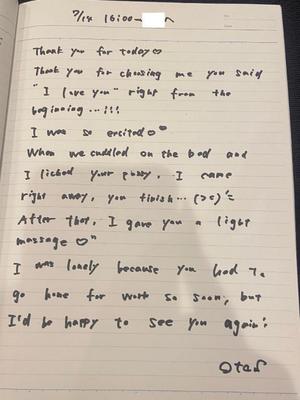 7/14 16:00~
Thank you for today♡
Thank you for choosing me you said
"I love you" right from the
beginning...!!!
I was so excited♡♡
When we cuddled on the bed and
I licked your pussy. I came
right away, you finish... (><)
After that, I gave you a light
massage ♡"
I was lonely because you had to
go home for work so soon, but
I'd be happy to see you again!